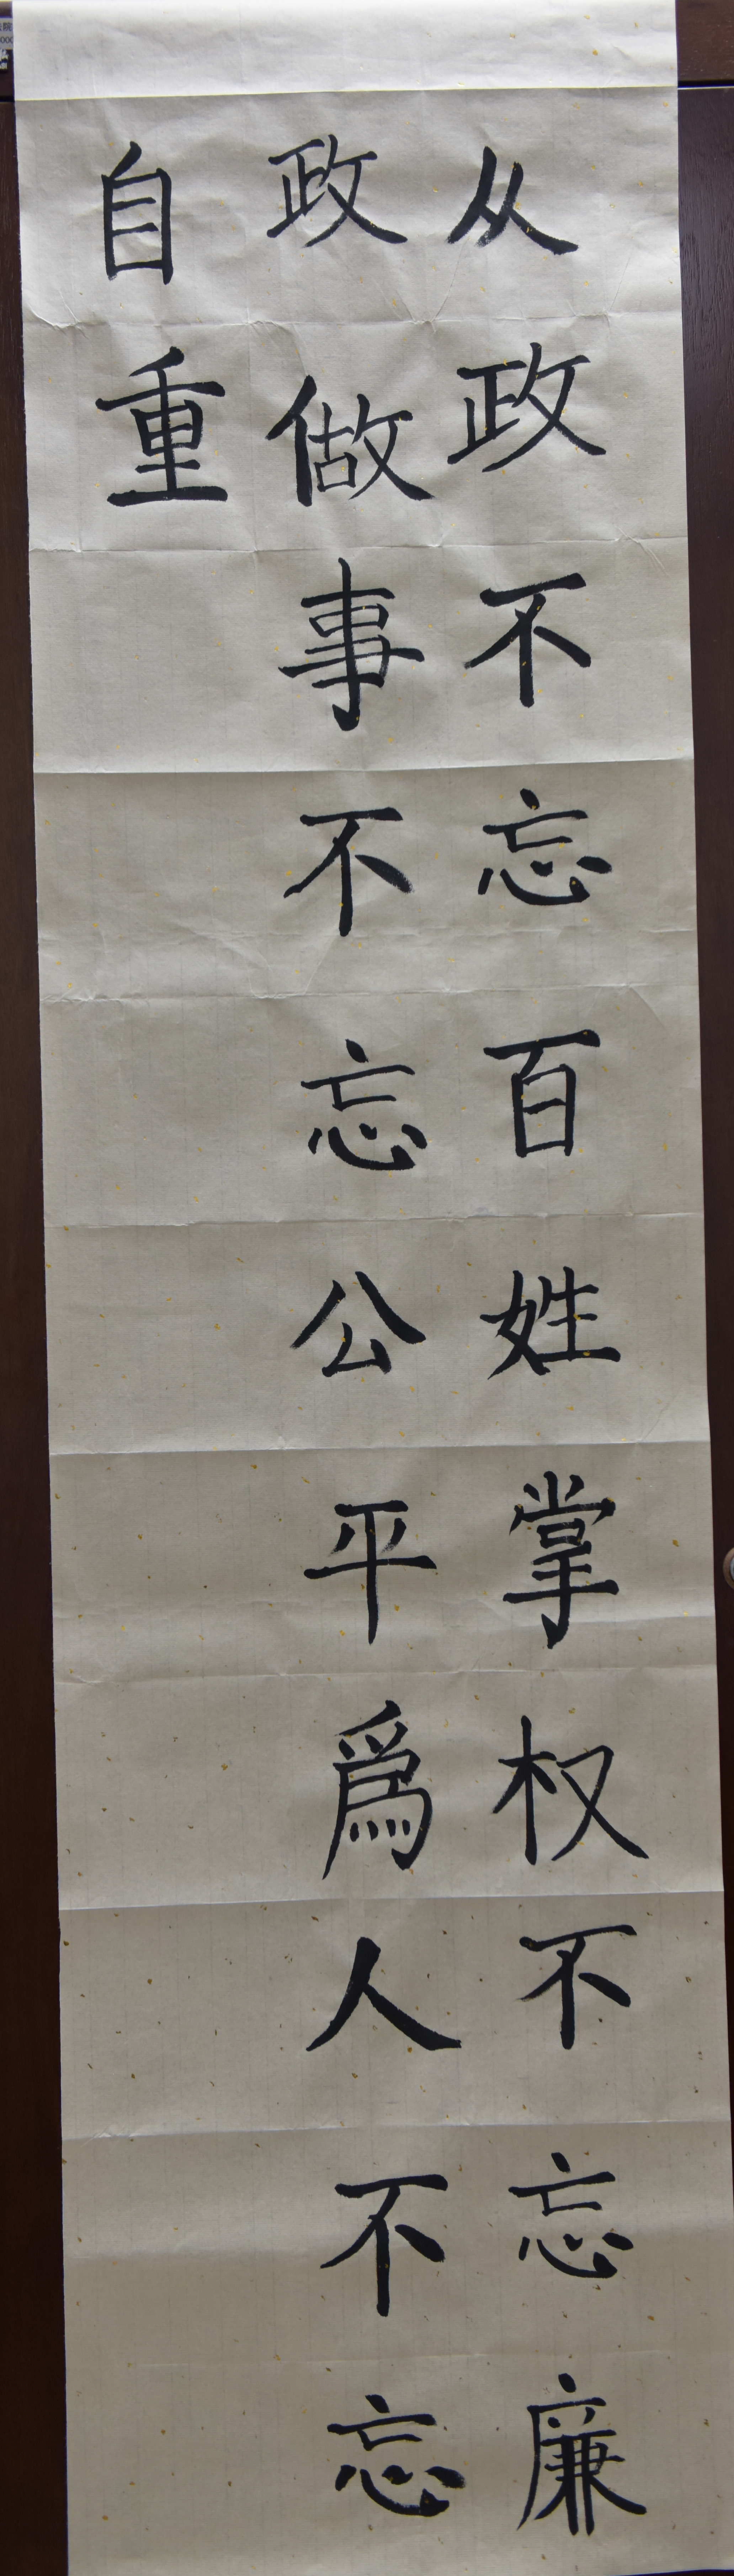 从政不忘百姓掌权不忘廉
政做事不忘公平爲人不忘
自重